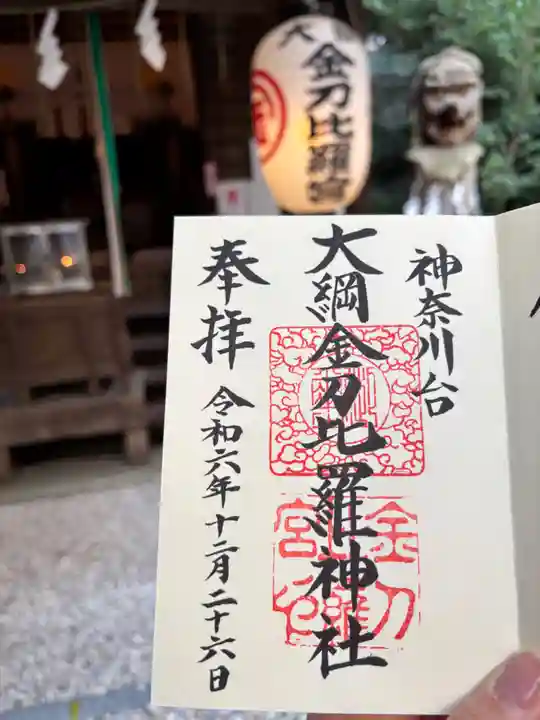 大
金刀比羅宮
神奈川台
大綱金刀比羅神社
奉拝
令和六年十二月二十六日
金刀
比羅
宮印